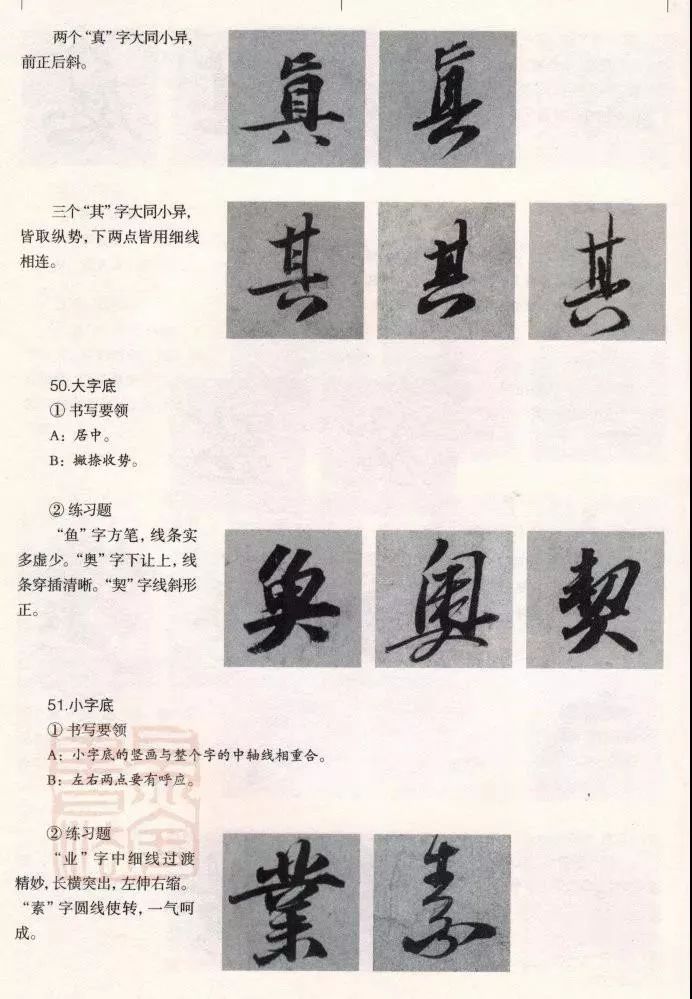 两个“真”字大同小异，
前正后斜。
真 真
三个“其”字大同小异，
皆取纵势，下两点皆用细线
相连。
其 其 其
50.大字底
① 书写要领
A：居中。
B：撇捺收势。
② 练习题
“鱼”字方笔，线条实
多虚少。“奥”字下让上，线
条穿插清晰。“契”字线斜形
正。
奥 契
51.小字底
① 书写要领
A：小字底的竖画与整个字的中轴线相重合。
B：左右两点要有呼应。
② 练习题
“业”字中细线过渡
精妙，长横突出，左伸右缩。
“素”字圆线使转，一气呵
成。
業 素